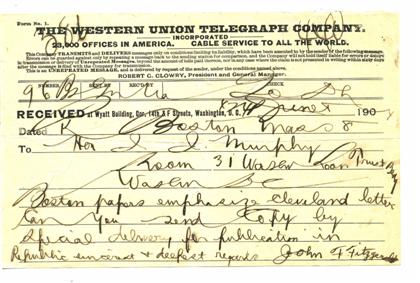 Form No. 1.
THE WESTERN UNION TELEGRAPH COMPANY.
INCORPORATED
23,000 OFFICES IN AMERICA. CABLE SERVICE TO ALL THE WORLD.
This Company TRANSMITS and DELIVERS messages only on conditions limiting its liability, which have been assented to by the sender of the following message.
Errors can be guarded against only by repeating a message back to the sending station for comparison, and the Company will not hold itself liable for errors or delays
in transmission or delivery of Unrepeated Messages, beyond the amount of tolls paid thereon, nor in any case where the claim is not presented in writing within sixty days
after the message is filed with the Company for transmission.
This is an UNREPEATED MESSAGE, and is delivered by request of the sender, under the conditions named above.
ROBERT C. CLOWRY, President and General Manager.
NUMBER SENT BY REC'D BY CHECK
96
RECEIVED at Wyatt Building, Cor. 14th & F Streets, Washington, D. C. 190
Dated Boston Mass 8
To Hon J. J. Murphy
Room 31 Washn Loan Trust Bldg
Washn DC
Boston papers emphasize Cleveland letter
Can you send copy by
special delivery for publication in
Republic sincerest & deepest regards John F Fitzgerald